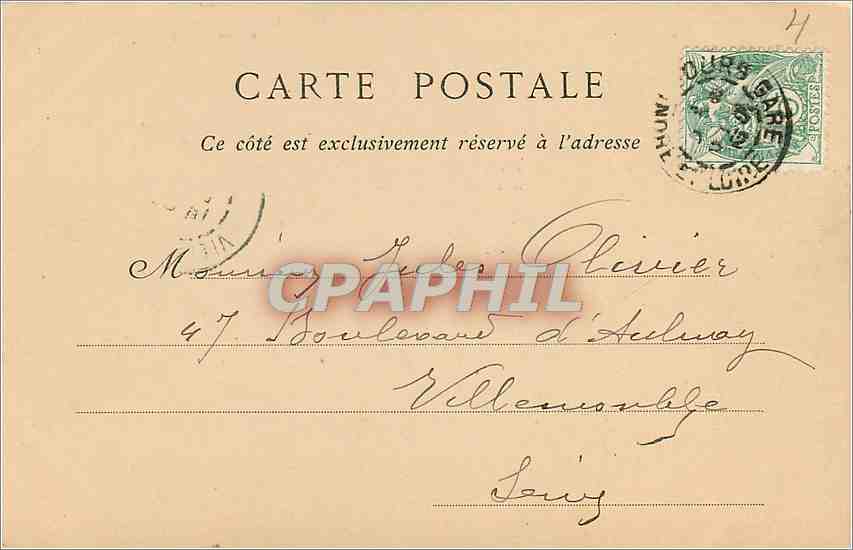 4
CARTE POSTALE
Ce côté est exclusivement réservé à l'adresse
TOURS GARE
ET-LOIRE
POSTES
Monsieur Jules Olivier
CPAPHIL
47 Boulevard d'Aulnay
Villemomble
Seine